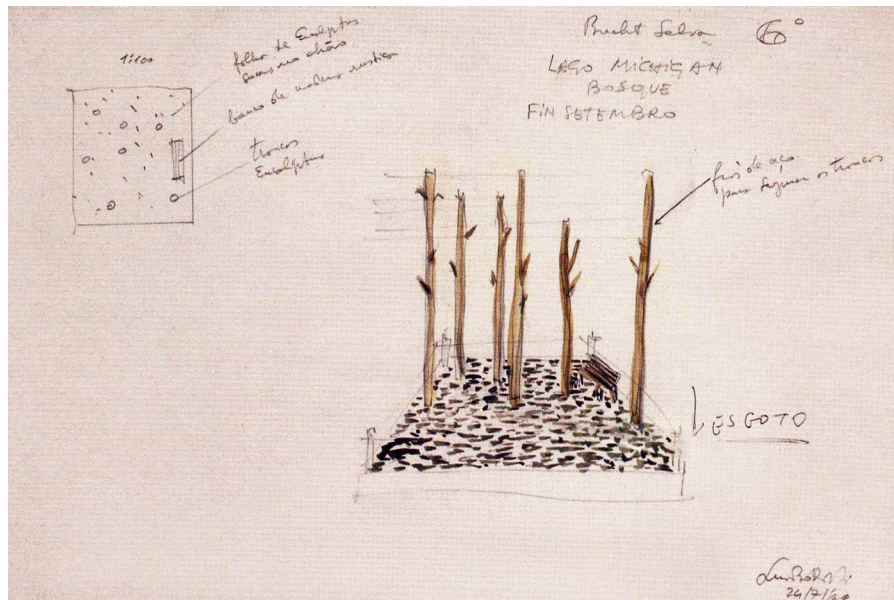 1:100
folha de Eucaliptus
secas no chão
banco de madeira rustica
troncos
Eucaliptus
Brecht Selva 6°
LAGO MICHIGAN
BOSQUE
FIN SETEMBRO
fios de aço
para segurar os troncos
ESGOTO
Lina Bo Bardi